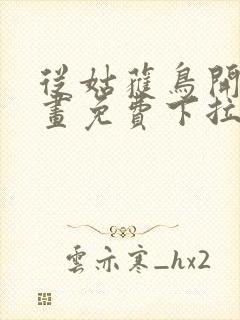 從姑蒱鳥開
畫免費下拉
雲亦寒_hx2